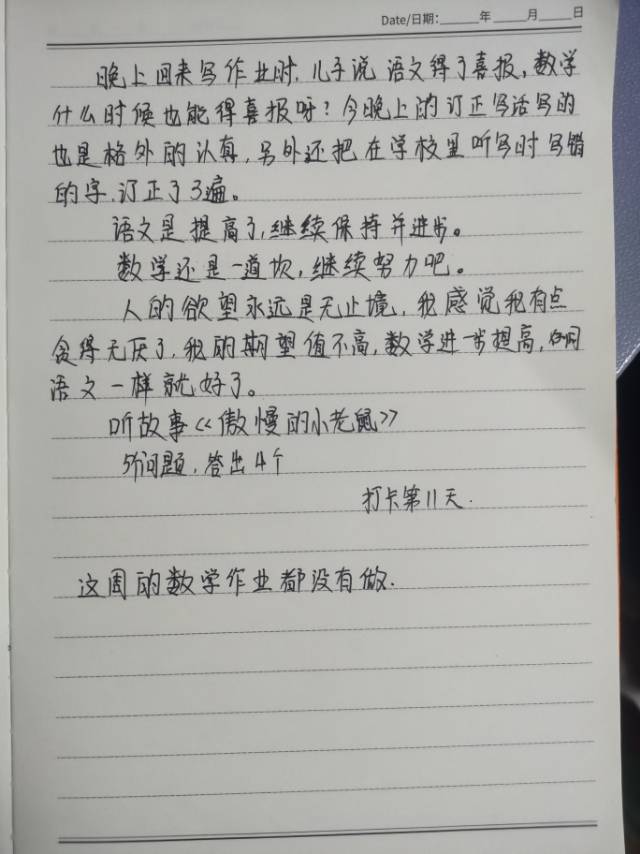 Date/日期:____年____月____日
晚上回来写作业时,儿子说 语文得了喜报,数学
什么时候也能得喜报呀?今晚上的订正写话写的
也是格外的认真,另外还把在学校里听写时写错
的字,订正了3遍。
语文是提高了,继续保持并进步。
数学还是一道坎,继续努力吧。
人的欲望永远是无止境,我感觉我有点
贪得无厌了,我的期望值不高,数学进一步提高,
语文一样就好了。
听故事《傲慢的小老鼠》
5个问题,答出4个
打卡第11天.
这周的数学作业都没有做.